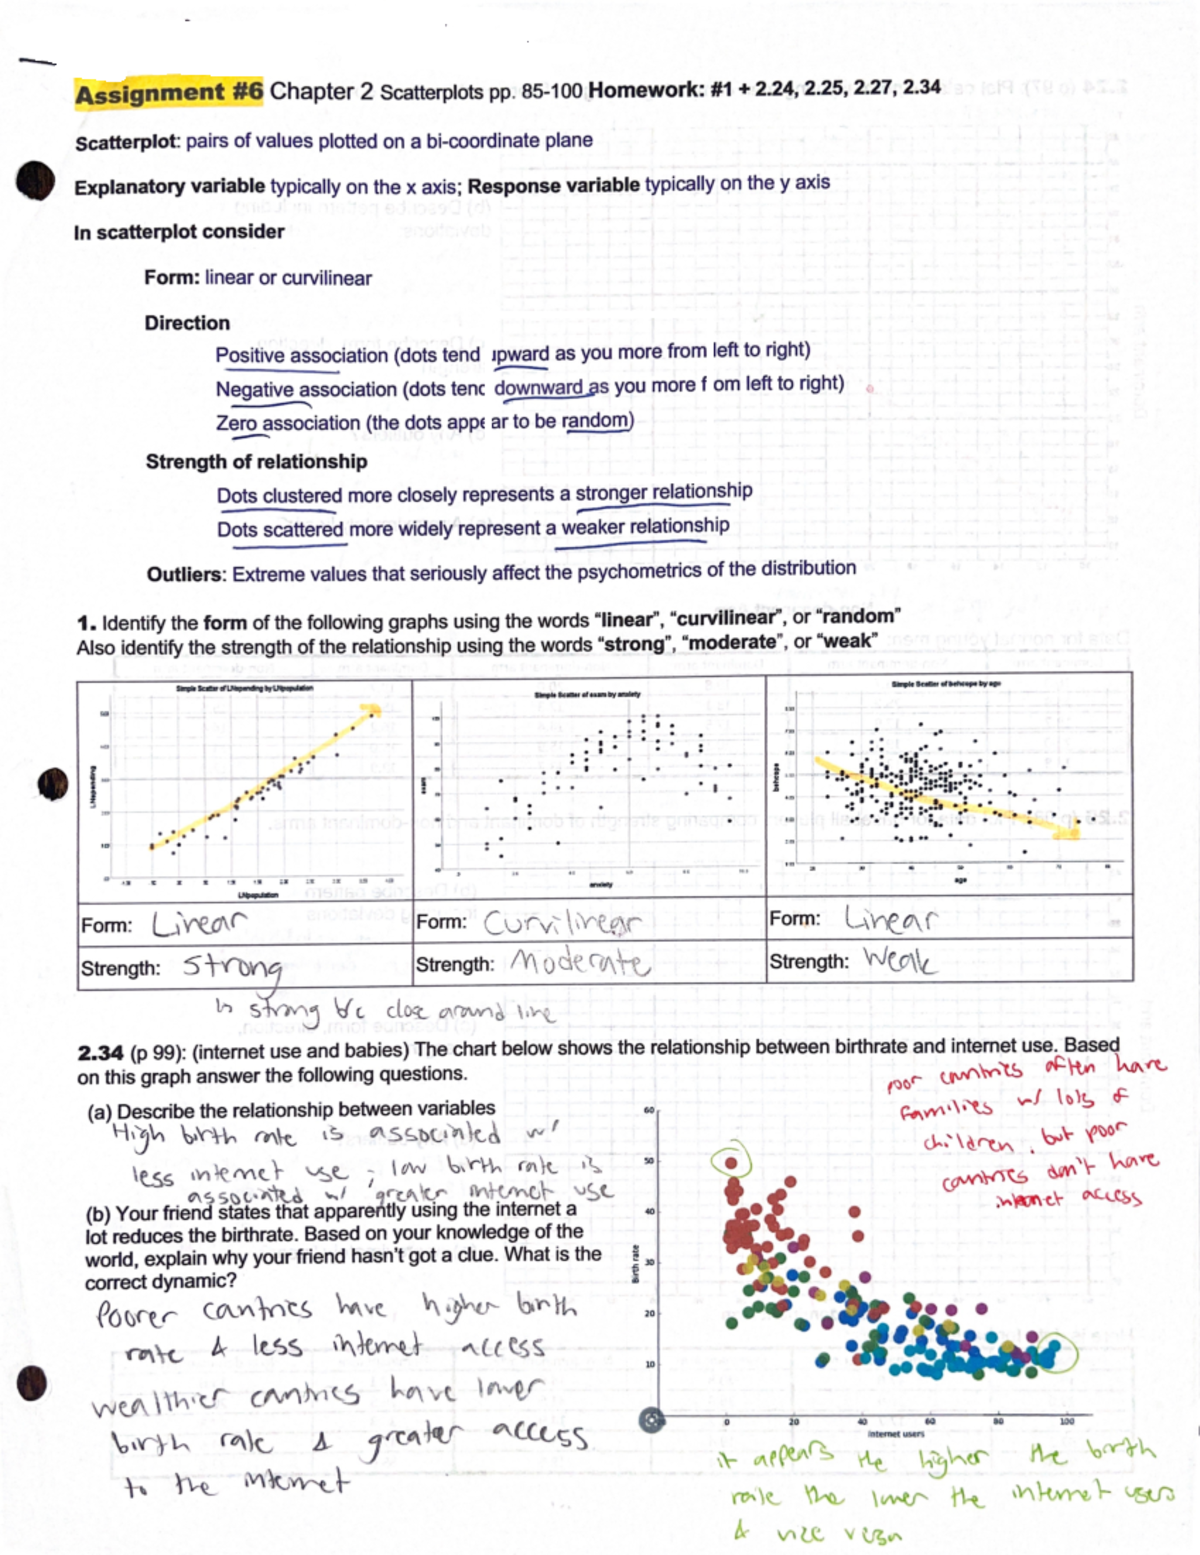 Assignment #6 Chapter 2 Scatterplots pp. 85-100 Homework: #1 + 2.24, 2.25, 2.27, 2.34
Scatterplot: pairs of values plotted on a bi-coordinate plane
Explanatory variable typically on the x axis; Response variable typically on the y axis
In scatterplot consider
Form: linear or curvilinear
Direction
Positive association (dots tend upward as you more from left to right)
Negative association (dots tend downward as you more from left to right)
Zero association (the dots appear to be random)
Strength of relationship
Dots clustered more closely represents a stronger relationship
Dots scattered more widely represent a weaker relationship
Outliers: Extreme values that seriously affect the psychometrics of the distribution
1. Identify the form of the following graphs using the words “linear”, “curvilinear”, or “random”
Also identify the strength of the relationship using the words “strong”, “moderate”, or “weak”
Simple Scatter of LNspending by LNpopulation
LNspending
LNpopulation
Simple Scatter of exam by anxiety
exam
anxiety
Simple Scatter of behcope by age
behcope
age
Form: Linear
Form: Curvilinear
Form: Linear
Strength: Strong
Strength: Moderate
Strength: Weak
↳ strong b/c close around line
2.34 (p 99): (internet use and babies) The chart below shows the relationship between birthrate and internet use. Based
on this graph answer the following questions.
poor countries often have
families w/ lots of
children, but poor
countries don't have
internet access
(a) Describe the relationship between variables
High birth rate is associated w/
less internet use ; low birth rate is
associated w/ greater internet use
(b) Your friend states that apparently using the internet a
lot reduces the birthrate. Based on your knowledge of the
world, explain why your friend hasn't got a clue. What is the
correct dynamic?
Poorer countries have higher birth
rate & less internet access
wealthier countries have lower
birth rate & greater access
to the internet
60
50
40
30
20
10
Birth rate
0 20 40 60 80 100
Internet users
it appears the higher the birth
rate the lower the internet users
& vice versa